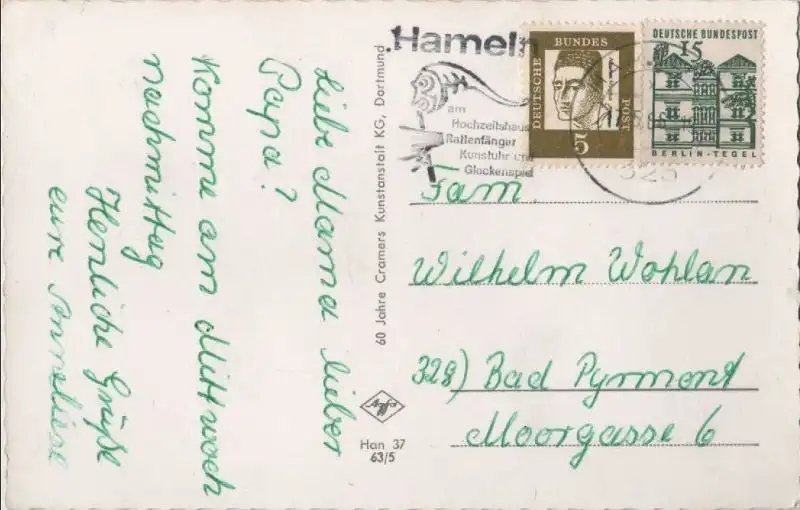 Liebe Mama lieber
Papa?
Komme am Mittwoch
nachmittag
Herzliche Grüße
eure Anneliese
60 Jahre Cramers Kunstanstalt KG, Dortmund
Agfa
Han 37
63/5
Hameln
am
Hochzeitshaus
Rattenfänger
Kunstuhr und
Glockenspiel
DEUTSCHE
BUNDES
POST
5
DEUTSCHE BUNDESPOST
15
BERLIN-TEGEL
325
Fam.
Wilhelm Wohlan
328) Bad Pyrmont
Moorgasse 6